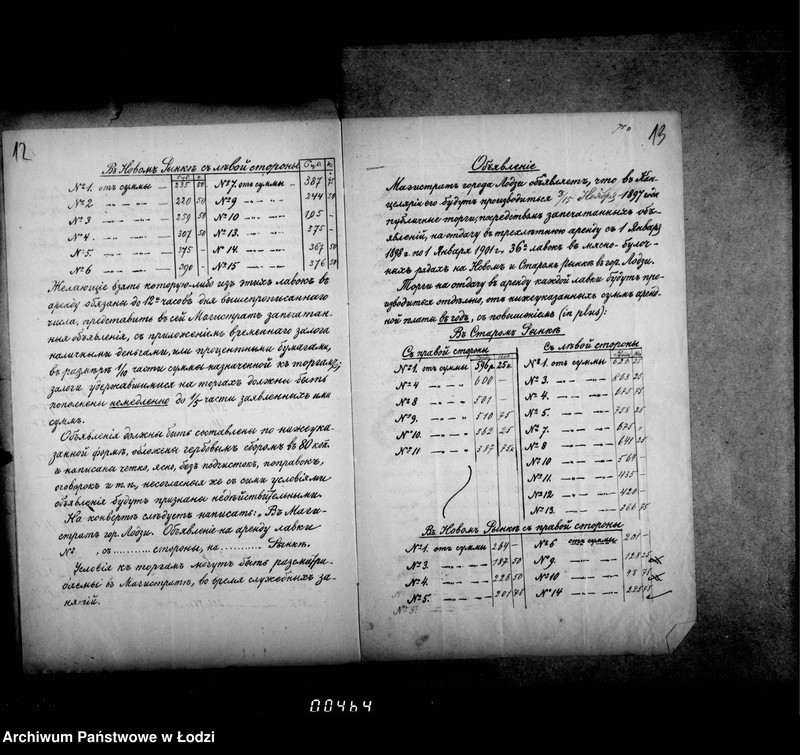 12
Въ Новомъ Рынкѣ съ лѣвой стороны
Руб. К.
№ 1. отъ суммы — 235 50
№ 2 — — 220 50
№ 3 — — 259 50
№ 4. — — 307 50
№ 5. — — 375 —
№ 6 — — 290 —
№ 7. отъ суммы — 387 75
№ 9 — — 244 50
№ 10 — — 105 —
№ 13. — — 375 —
№ 14. — — 367 50
№ 15 — — 376 50
Желающіе взять которую-либо изъ этихъ лавокъ въ
аренду обязаны до 12ᵗⁱ часовъ дня вышепрописаннаго
числа, представить въ сей Магистратъ запечатан-
ныя объявленія, съ приложеніемъ временнаго залога
наличными деньгами, или процентными бумагами,
въ размѣрѣ 1/10 части суммы назначенной къ торгамъ;
залоги удержавшимися на торгахъ должны быть
пополнены немедленно до 1/5 части заявленныхъ ими
суммъ.
Объявленія должны быть составлены по нижеука-
занной формѣ, обложены гербовымъ сборомъ въ 80 коп.
и написаны четко, ясно, безъ подчистокъ, поправокъ,
оговорокъ и т.п., несогласныя же съ сими условіями
объявленія будутъ признаны недѣйствительными.
На конвертѣ слѣдуетъ написать: "Въ Маги-
стратъ гор. Лодзи. Объявленіе на аренду лавки
№ , съ ........... стороны, на ........... Рынкѣ.
Условія къ торгамъ могутъ быть разсматри-
ваемы въ Магистратѣ, во время служебныхъ за-
нятій.
13
Объявленіе
Магистратъ города Лодзи объявляетъ, что въ Кан-
целяріи его будутъ производиться 3/15 Ноября 1897 года
публичные торги, посредствомъ запечатанныхъ объ-
явленій, на отдачу въ трехлѣтнюю аренду съ 1 Января
1898 г. по 1 Января 1901 г., 36ᵗⁱ лавокъ въ мясно-булоч-
ныхъ рядахъ на Новомъ и Старомъ Рынкѣ въ гор. Лодзи.
Торги на отдачу въ аренду каждой лавки будутъ про-
изводиться отдѣльно, отъ нижеуказанныхъ суммъ аренд-
ной платы въ годъ, съ повышеніемъ (in plus):
Въ Старомъ Рынкѣ
Съ правой стороны
№ 1. отъ суммы 596 р. 25 к.
№ 4 — — 600 —
№ 8 — — 501 —
№ 9. — — 510 75
№ 10. — — 562 25
№ 11 — — 387 75
Съ лѣвой стороны
№ 1. отъ суммы 626 25
№ 3. — — 803 25
№ 4. — — 675 75
№ 5. — — 758 25
№ 7. — — 675
№ 8 — — 641 25
№ 10 — — 569 —
№ 11. — — 435 —
№ 12 — — 420 —
№ 13. — — 366 75
Въ Новомъ Рынкѣ съ правой стороны
№ 1. отъ суммы 264 —
№ 3. — — 187 50
№ 4. — — 226 50
№ 5. — — 201 75
№ 6 отъ суммы 201 —
№ 9. — — 128 25
№ 10 — — 93 75
№ 14 — — 225 75
00464
Archiwum Państwowe w Łodzi